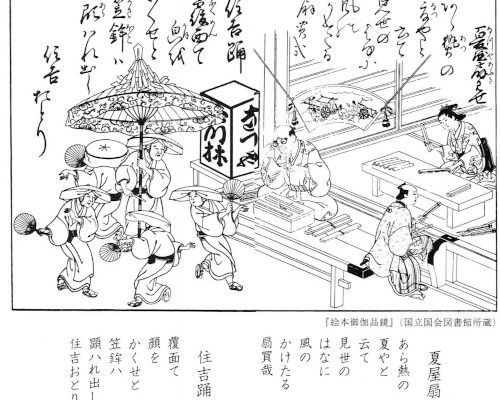 あら熱の
夏やと
云て
見世の
はなに
風の
住吉踊
覆面て
顔を
かくせと
笠鉾ハ
顕ハれ出し
住吉おとり
『絵本御伽品鏡』(国立国会図書館所蔵)
夏屋扇
あら熱の
夏やと
云て
見世の
はなに
風の
かけたる
扇買哉
住吉踊
覆面て
顔を
かくせと
笠鉾ハ
顕ハれ出し
住吉おとり